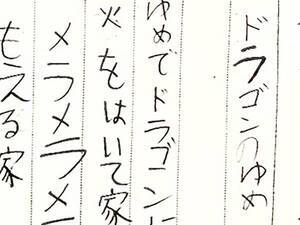 ドラゴンのゆめ
ゆめでドラゴンに
火をはいて家
メラメラメ
もえる家